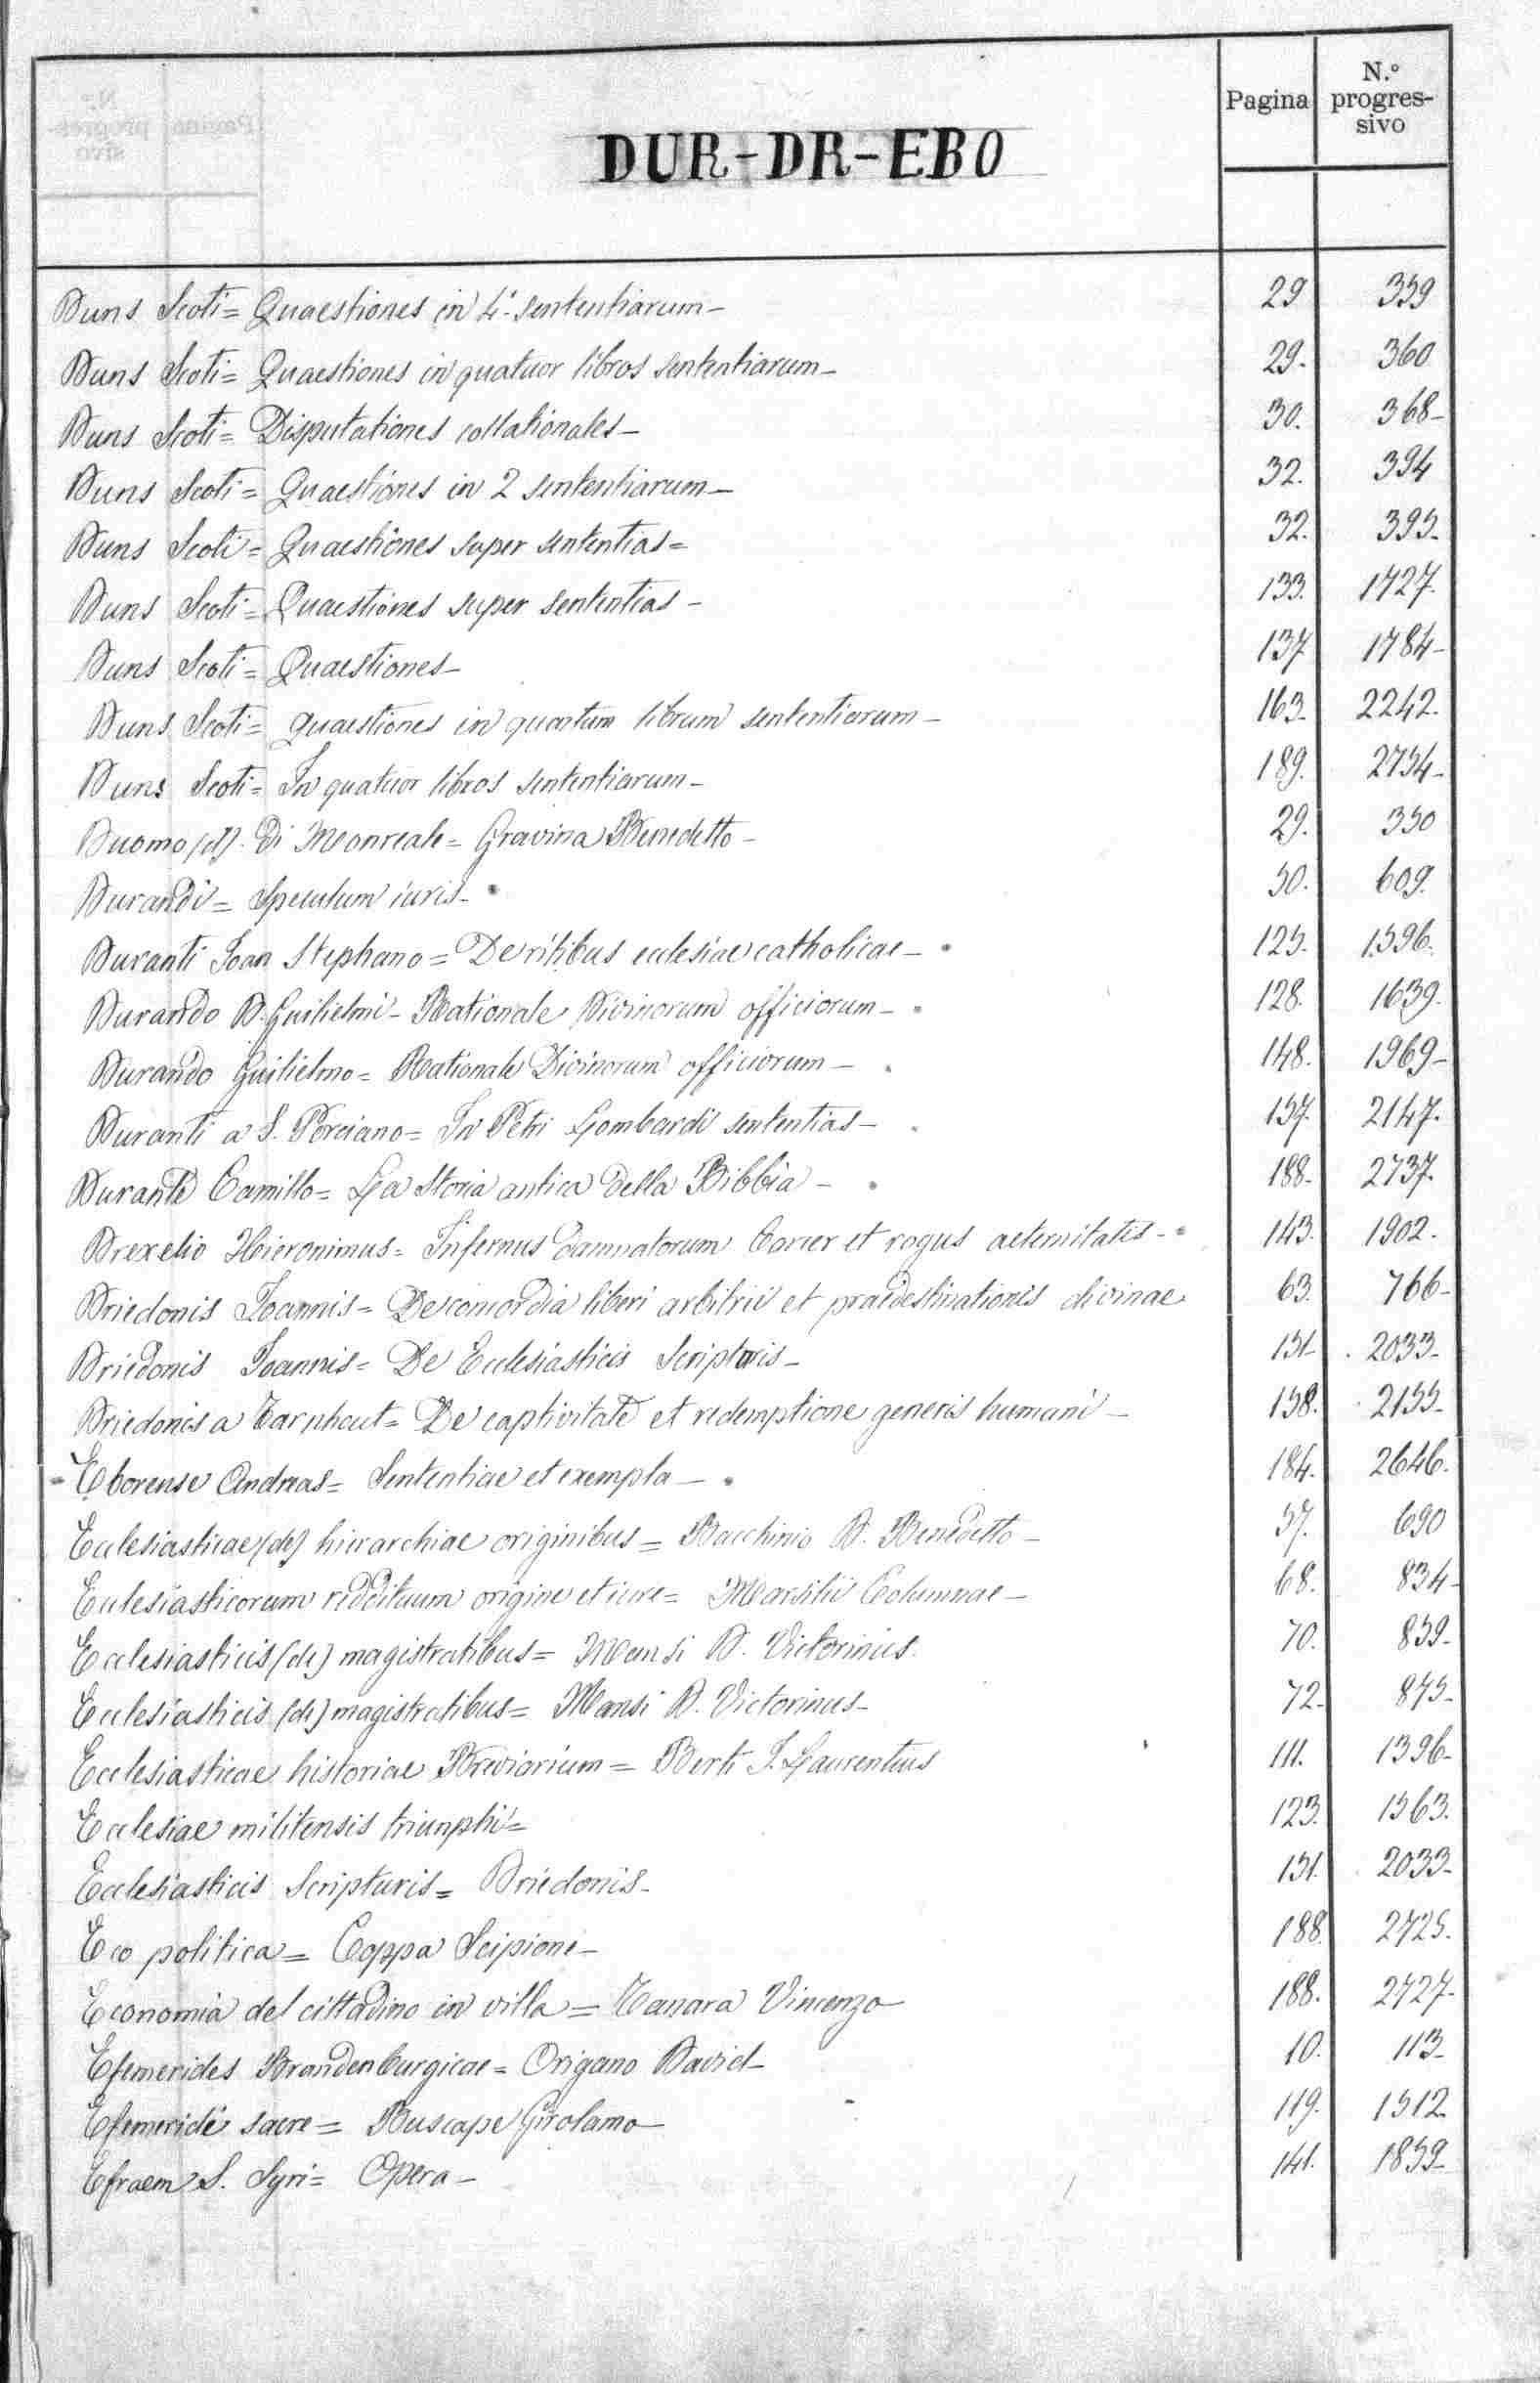 Pagina N.º progressivo
DUR-DR-EBO
Duns Scoti = Quaestiones in 4. sententiarum - 29 359
Duns Scoti = Quaestiones in quatuor libros sententiarum - 29. 360
Duns Scoti = Disputationes collationales - 30. 368-
Duns Scoti = Quaestiones in 2 sententiarum - 32. 394
Duns Scoti = Quaestiones super sententias = 32. 395-
Duns Scoti = Quaestiones super sententias - 133. 1727.
Duns Scoti = Quaestiones - 137 1784-
Duns Scoti = quaestiones in quartum librum sententiarum - 163. 2242.
Duns Scoti = In quatuor libros sententiarum - 189. 2754-
Duomo (il). Di Monreale = Gravina Benedetto - 29. 350
Durandi = Speculum iuris - 50. 609.
Duranti Ioan Stephano = De ritibus ecclesiae catholicae - 125. 1596.
Durando D. Guilielmi - Rationale Divinorum officiorum - 128. 1639.
Durando Guilielmo = Rationale Divinorum officiorum - 148. 1969-
Duranti a S. Porciano = In Petri Lombardi sententias - 157. 2147.
Durante Camillo = La Storia antica della Bibbia - 188- 2737.
Drexelio Hieronimus = Infernus damnatorum Carcer et rogus aeternitatis - 143. 1902.
Driedonis Ioannis = De concordia liberi arbitrii et praedestinationis divinae 63. 766-
Driedonis Ioannis = De Ecclesiasticis Scripturis - 151- 2033-
Driedonis a Turnhout = De captivitate et redemptione generis humani - 158. 2155-
Eborense Andreas = Sententiae et exempla - 184. 2646.
Ecclesiasticae (de) hierarchiae originibus = Bacchinio D. Benedetto - 57. 690
Ecclesiasticorum reddituum origine et iure = Marsilii Columnae - 68. 834-
Ecclesiasticis (de) magistratibus = Mansi D. Victorinus. 70. 859-
Ecclesiasticis (de) magistratibus = Mansi D. Victorinus - 72- 875-
Ecclesiasticae historiae Breviarium = Berti I. Laurentius 111. 1396-
Ecclesiae militensis triumphi = 123. 1563.
Ecclesiasticis Scripturis = Driedonis - 151. 2033-
Eco politica = Coppa Scipione - 188. 2725.
Economia del cittadino in villa = Tanara Vincenzo 188. 2727-
Efemerides Brandenburgicae = Origano David - 10. 113-
Efemeridi sacre = Buscape Girolamo - 119. 1512
Efraem S. Syri = Opera - 141. 1859-